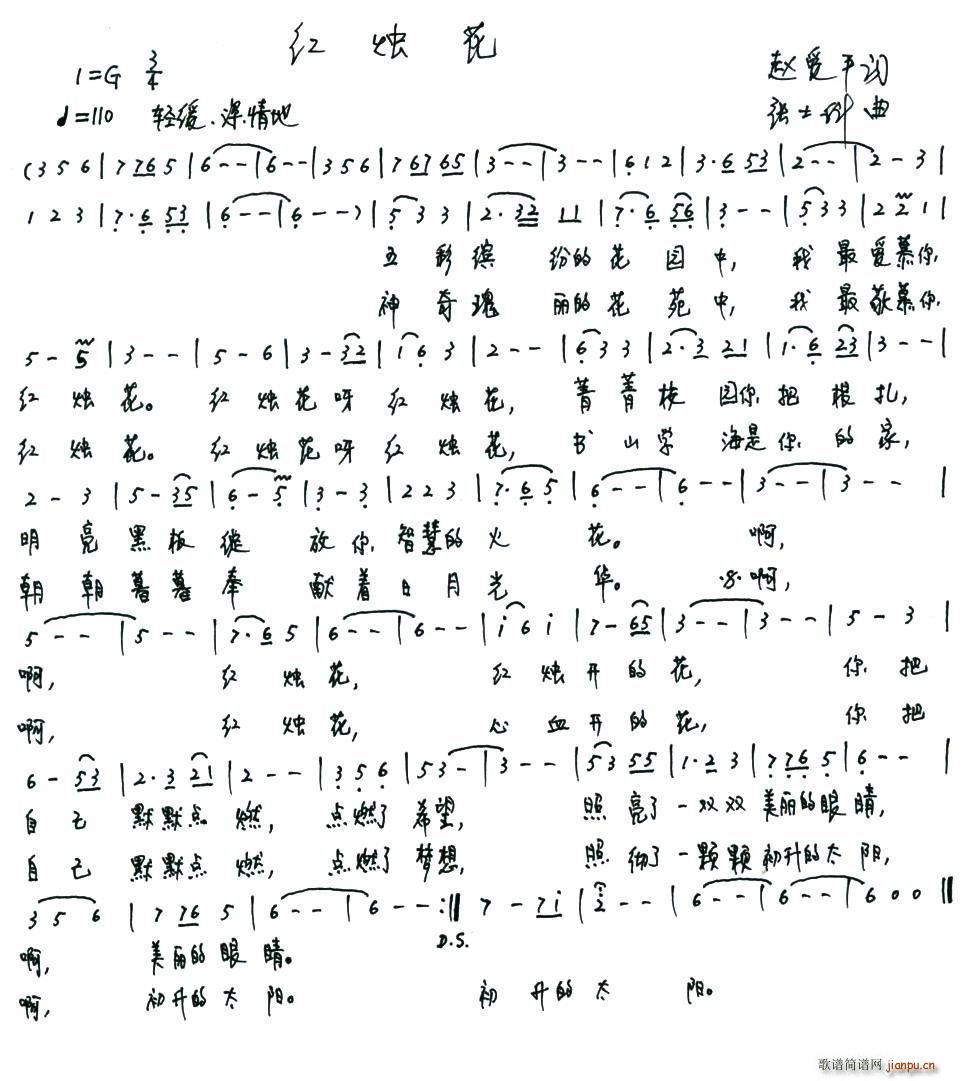 红烛花
1=G 3/4
赵爱平词
♩=110 轻缓、深情地
张士 曲
(3 5 6 | 7 76 5 | 6 - - | 6 - - | 3 5 6 | 7 67 65 | 3 - - | 3 - - | 6 1 2 | 3·6 53 | 2 - - | 2 - 3 |
1 2 3 | 7·6 53 | 6 - - | 6 - -) | 5 3 3 | 2·32 11 | 7·6 56 | 3 - - | 5 3 3 | 2 2 1 |
五彩缤 纷的花园中, 我最爱慕你
神奇瑰 丽的花苑中, 我最敬慕你
5 - 5 | 3 - - | 5 - 6 | 3 - 32 | i 6 3 | 2 - - | 6 3 3 | 2·3 21 | 1·6 23 | 3 - - |
红烛花。 红烛花呀红烛花, 菁菁校园你把根扎,
红烛花。 红烛花呀红烛花, 书山学海是你的家,
2 - 3 | 5 - 35 | 6 - 5 | 3 - 3 | 2 2 3 | 7·6 5 | 6 - - | 6 - - | 3 - - | 3 - - |
明亮黑板绽放你智慧的火花。 啊,
朝朝暮暮奉献着日月光华。 ·S·啊,
5 - - | 5 - - | 7·6 5 | 6 - - | 6 - - | i 6 i | 7 - 65 | 3 - - | 3 - - | 5 - 3 |
啊, 红烛花, 红烛开的花, 你把
啊, 红烛花, 心血开的花, 你把
6 - 53 | 2·3 21 | 2 - - | 3 5 6 | 5 3 - | 3 - - | 5 3 55 | 1·2 3 | 7 76 5 | 6 - - |
自己默默点燃, 点燃了希望, 照亮了一双双美丽的眼睛,
自己默默点燃, 点燃了梦想, 照彻了一颗颗初升的太阳,
3 5 6 | 7 76 5 | 6 - - | 6 - - :‖ 7 - 7i | 2 - - | 6 - - | 6 - - | 6 0 0 ‖
D.S.
啊, 美丽的眼睛。
啊, 初升的太阳。 初升的太阳。
歌谱简谱网 jianpu.cn